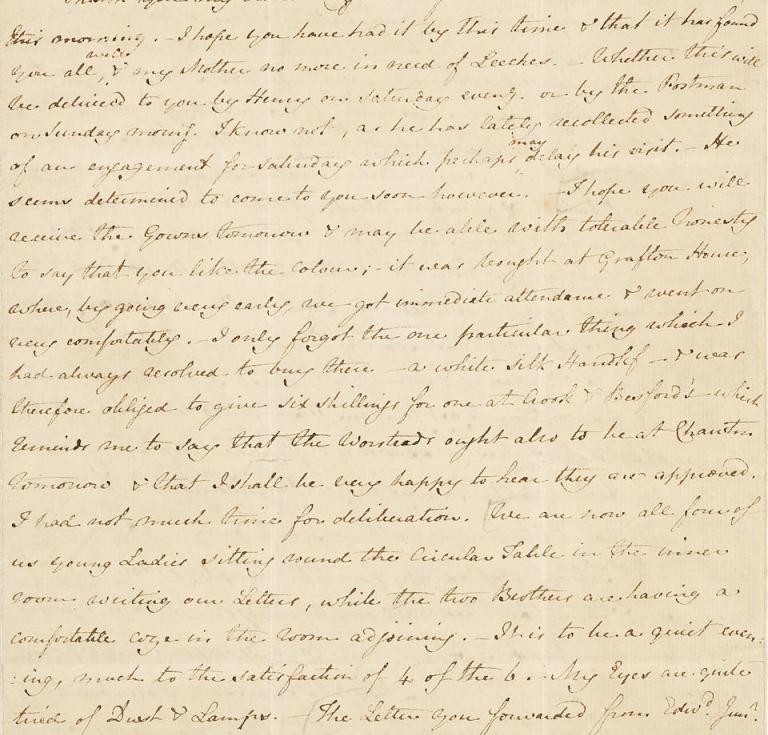 this morning. - I hope you have had it by this time & that it has found
you all well, & my Mother no more in need of Leeches. - Whether this will
be deliver'd to you by Henry on Saturday eveng. or by the Postman
on Sunday morng. I know not, as he has lately recollected something
of an engagement for Saturday which perhaps may delay his visit. - He
seems determined to come to you soon however. - I hope you will
receive the Gowns tomorrow & may be able with tolerable honesty
to say that you like the Colour; - it was bought at Grafton House,
where, by going very early, we got immediate attendance & went on
very comfortably. - I only forgot the one particular thing which I
had always resolved to buy there - a white silk Handkf - & was
therefore obliged to give six shillings for one at Crook & Besford's - which
reminds me to say that the Worsteds ought also to be at Chawton
tomorrow & that I shall be very happy to hear they are approved.
I had not much time for deliberation. We are now all four of
us young Ladies sitting round the Circular Table in the inner
room writing our Letters, while the two Brothers are having a
comfortable coze in the room adjoining. - It is to be a quiet even:
:ing, much to the satisfaction of 4 of the 6. - My Eyes are quite
tired of Dust & Lamps. - The Letter you forwarded from Edwd. Junr.